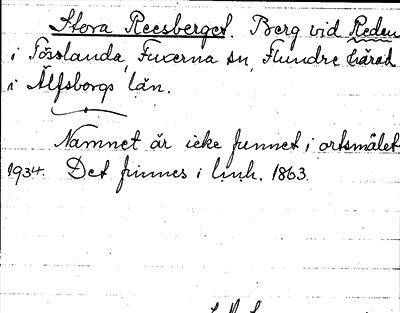 Stora Reesberget. Berg vid Reden
i Tösslanda, Fuxerna sn, Flundre härad
i Älfsborgs län.
Namnet är icke funnet i ortsmålet
1934. Det finnes i linh. 1863.